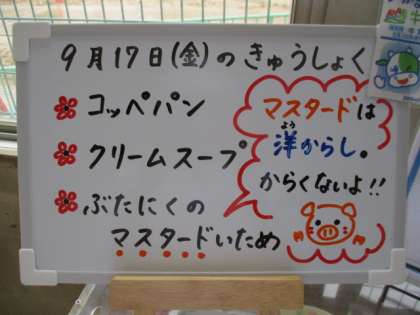 9月17日(金)のきゅうしょく
コッペパン
クリームスープ
ぶたにくの
マスタードいため
マスタードは
よう
洋からし。
からくないよ!!